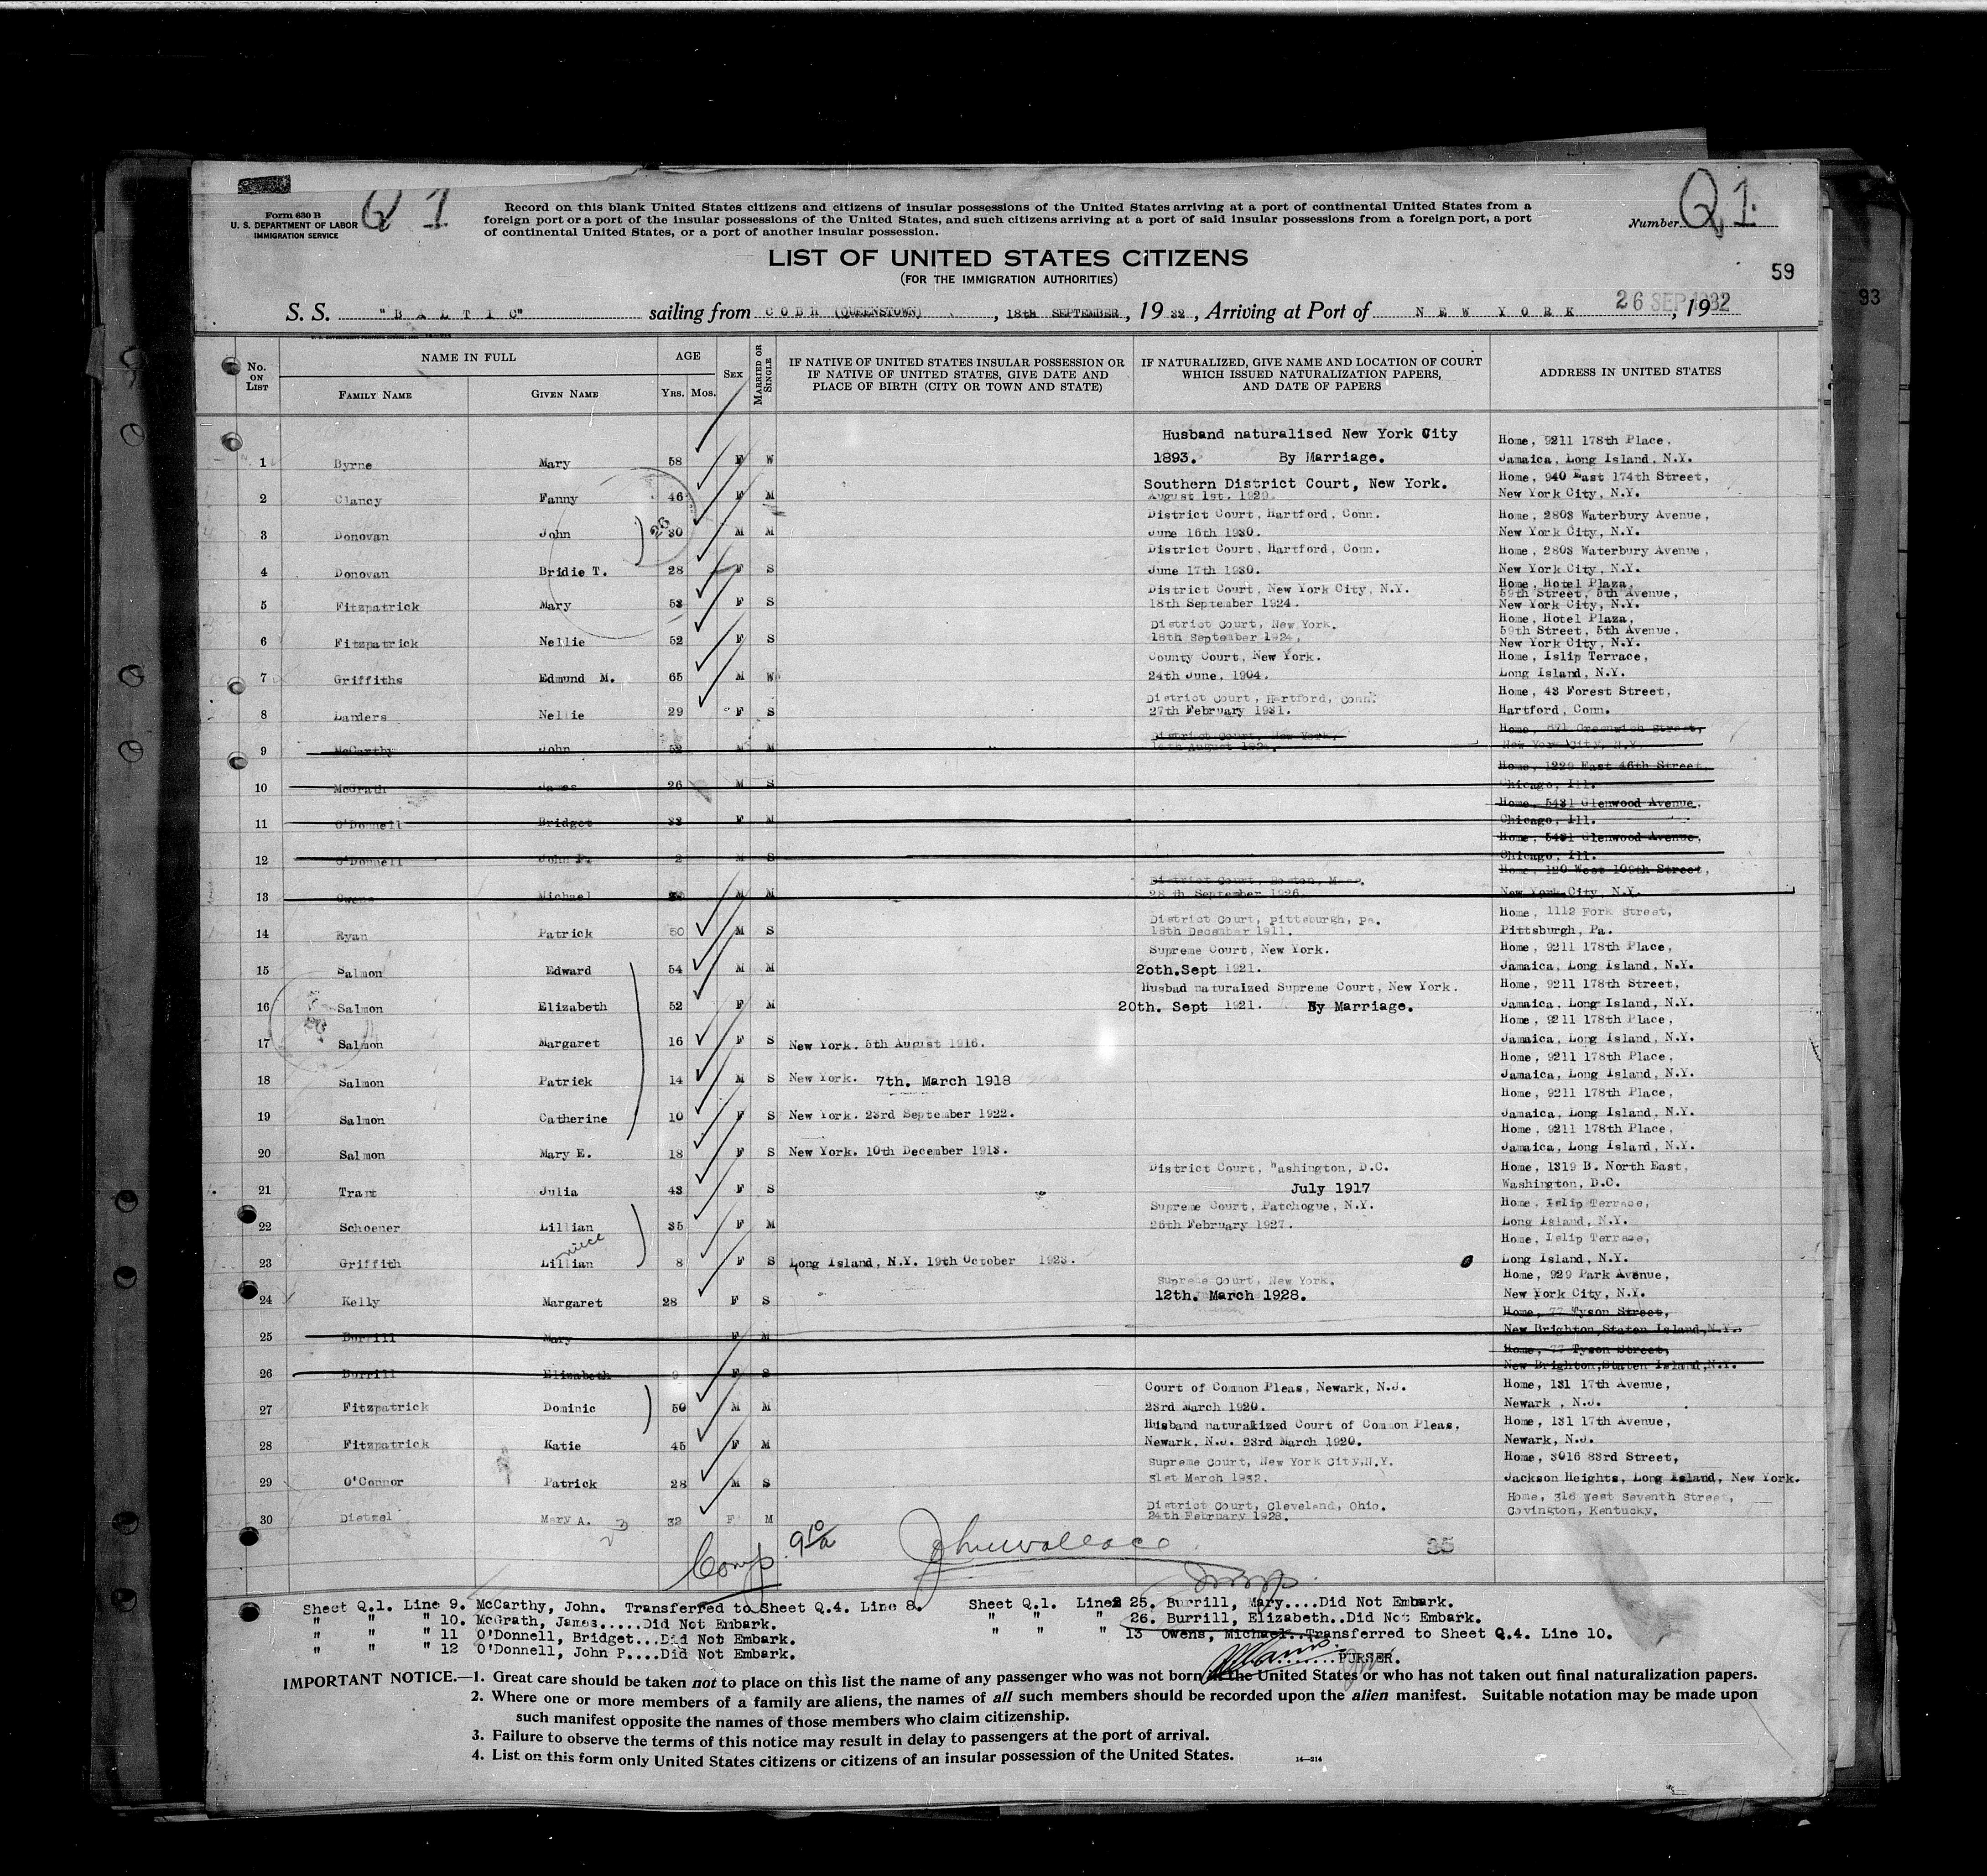 Form 630 B
U. S. DEPARTMENT OF LABOR
IMMIGRATION SERVICE
Q 1
Record on this blank United States citizens and citizens of insular possessions of the United States arriving at a port of continental United States from a
foreign port or a port of the insular possessions of the United States, and such citizens arriving at a port of said insular possessions from a foreign port, a port
of continental United States, or a port of another insular possession.
Number Q1.
LIST OF UNITED STATES CITIZENS
(FOR THE IMMIGRATION AUTHORITIES)
59
93
S. S. "BALTIC" sailing from COBH (QUEENSTOWN), 18th SEPTEMBER, 19 32, Arriving at Port of NEW YORK 26 SEP 1932, 19
No. ON LIST NAME IN FULL AGE SEX MARRIED OR SINGLE IF NATIVE OF UNITED STATES INSULAR POSSESSION OR IF NATIVE OF UNITED STATES, GIVE DATE AND PLACE OF BIRTH (CITY OR TOWN AND STATE) IF NATURALIZED, GIVE NAME AND LOCATION OF COURT WHICH ISSUED NATURALIZATION PAPERS, AND DATE OF PAPERS ADDRESS IN UNITED STATES
FAMILY NAME GIVEN NAME YRS. MOS.
Husband naturalised New York City Home, 9211 178th Place,
1 Byrne Mary 58 F W 1893. By Marriage. Jamaica, Long Island, N.Y.
Southern District Court, New York. Home, 940 East 174th Street,
2 Clancy Fanny 46 F M August 1st. 1929. New York City, N.Y.
District Court, Hartford, Conn. Home, 2803 Waterbury Avenue,
3 Donovan John 30 M M June 16th 1930. New York City, N.Y.
District Court, Hartford, Conn. Home, 2803 Waterbury Avenue,
4 Donovan Bridie T. 28 F S June 17th 1930. New York City, N.Y.
District Court, New York City, N.Y. Home, Hotel Plaza, 59th Street, 5th Avenue,
5 Fitzpatrick Mary 53 F S 18th September 1924. New York City, N.Y.
District Court, New York. Home, Hotel Plaza, 59th Street, 5th Avenue,
6 Fitzpatrick Nellie 52 F S 18th September 1924. New York City, N.Y.
County Court, New York. Home, Islip Terrace,
7 Griffiths Edmund M. 65 M W 24th June, 1904. Long Island, N.Y.
District Court, Hartford, Conn. Home, 43 Forest Street,
8 Landers Nellie 29 F S 27th February 1931. Hartford, Conn.
District Court, New York, Home, 671 Greenwich Street,
9 McCarthy John 52 M M August New York City, N.Y.
Home, 1229 East 46th Street,
10 McGrath James 26 M S Chicago, Ill.
Home, 5431 Glenwood Avenue,
11 O'Donnell Bridget 33 F M Chicago, Ill.
Home, 5431 Glenwood Avenue,
12 O'Donnell John P. 2 M S Chicago, Ill.
District Court, Boston, Mass. Home, 120 West 109th Street,
13 Owens Michael M M 28th September 1926. New York City, N.Y.
District Court, Pittsburgh, Pa. Home, 1112 Fork Street,
14 Ryan Patrick 50 M S 18th December 1911. Pittsburgh, Pa.
Supreme Court, New York. Home, 9211 178th Place,
15 Salmon Edward 54 M M 20th.Sept 1921. Jamaica, Long Island, N.Y.
Husbad naturaized Supreme Court, New York. Home, 9211 178th Street,
16 Salmon Elizabeth 52 F M 20th. Sept 1921. By Marriage. Jamaica, Long Island, N.Y.
Home, 9211 178th Place,
17 Salmon Margaret 16 F S New York. 5th August 1916. Jamaica, Long Island, N.Y.
Home, 9211 178th Place,
18 Salmon Patrick 14 M S New York. 7th. March 1918 Jamaica, Long Island, N.Y.
Home, 9211 178th Place,
19 Salmon Catherine 10 F S New York. 23rd September 1922. Jamaica, Long Island, N.Y.
Home, 9211 178th Place,
20 Salmon Mary E. 18 F S New York. 10th December 1913. Jamaica, Long Island, N.Y.
District Court, Washington, D.C. Home, 1319 B. North East,
21 Trant Julia 43 F S July 1917 Washington, D.C.
Supreme Court, Patchogue, N.Y. Home, Islip Terrace,
22 Schoener Lillian 35 F M 26th February 1927. Long Island, N.Y.
niece Home, Islip Terrace,
23 Griffith Lillian 8 F S Long Island, N.Y. 19th October 1923. Long Island, N.Y.
Supreme Court, New York. Home, 929 Park Avenue,
24 Kelly Margaret 28 F S 12th. March 1928. New York City, N.Y.
Home, 77 Tyson Street,
25 Burrill Mary F M New Brighton, Staten Island, N.Y.
Home, 77 Tyson Street,
26 Burrill Elizabeth 9 F S New Brighton, Staten Island, N.Y.
Court of Common Pleas, Newark, N.J. Home, 131 17th Avenue,
27 Fitzpatrick Dominic 50 M M 23rd March 1920. Newark, N.J.
Husband naturalized Court of Common Pleas, Home, 131 17th Avenue,
28 Fitzpatrick Katie 45 F M Newark, N.J. 23rd March 1920. Newark, N.J.
Supreme Court, New York City,N.Y. Home, 3016 83rd Street,
29 O'Connor Patrick 28 M S 31st March 1932. Jackson Heights, Long Island, New York.
District Court, Cleveland, Ohio. Home, 318 West Seventh Street,
30 Dietzel Mary A. 32 F M 24th February 1928. Covington, Kentucky.
23 Comp. John Wallace 35
Sheet Q.1. Line 9. McCarthy, John. Transferred to Sheet Q.4. Line 8. Sheet Q.1. Line 25. Burrill, Mary....Did Not Embark.
" " " 10. McGrath, James.....Did Not Embark. " " " 26. Burrill, Elizabeth..Did Not Embark.
" " " 11 O'Donnell, Bridget...Did Not Embark. " " " 13 Owens, Michael..Transferred to Sheet Q.4. Line 10.
" " " 12 O'Donnell, John P....Did Not Embark.
PURSER.
IMPORTANT NOTICE.—1. Great care should be taken not to place on this list the name of any passenger who was not born in the United States or who has not taken out final naturalization papers.
2. Where one or more members of a family are aliens, the names of all such members should be recorded upon the alien manifest. Suitable notation may be made upon
such manifest opposite the names of those members who claim citizenship.
3. Failure to observe the terms of this notice may result in delay to passengers at the port of arrival.
4. List on this form only United States citizens or citizens of an insular possession of the United States.
14—214